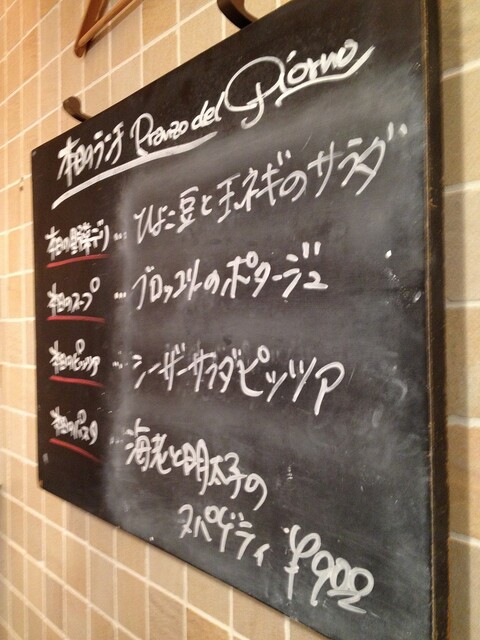 本日のランチ Pranzo del Giorno
本日の野菜デリ … ひよこ豆と玉ネギのサラダ
本日のスープ … ブロッコリーのポタージュ
本日のピッツァ … シーザーサラダピッツァ
本日のパスタ … 海老と明太子の
スパゲティ ¥900